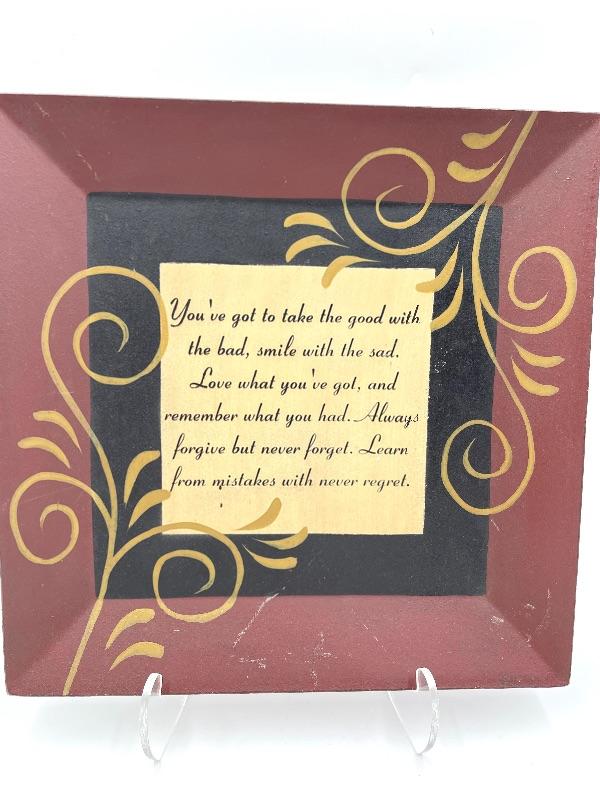 You've got to take the good with
the bad, smile with the sad.
Love what you've got, and
remember what you had. Always
forgive but never forget. Learn
from mistakes with never regret.